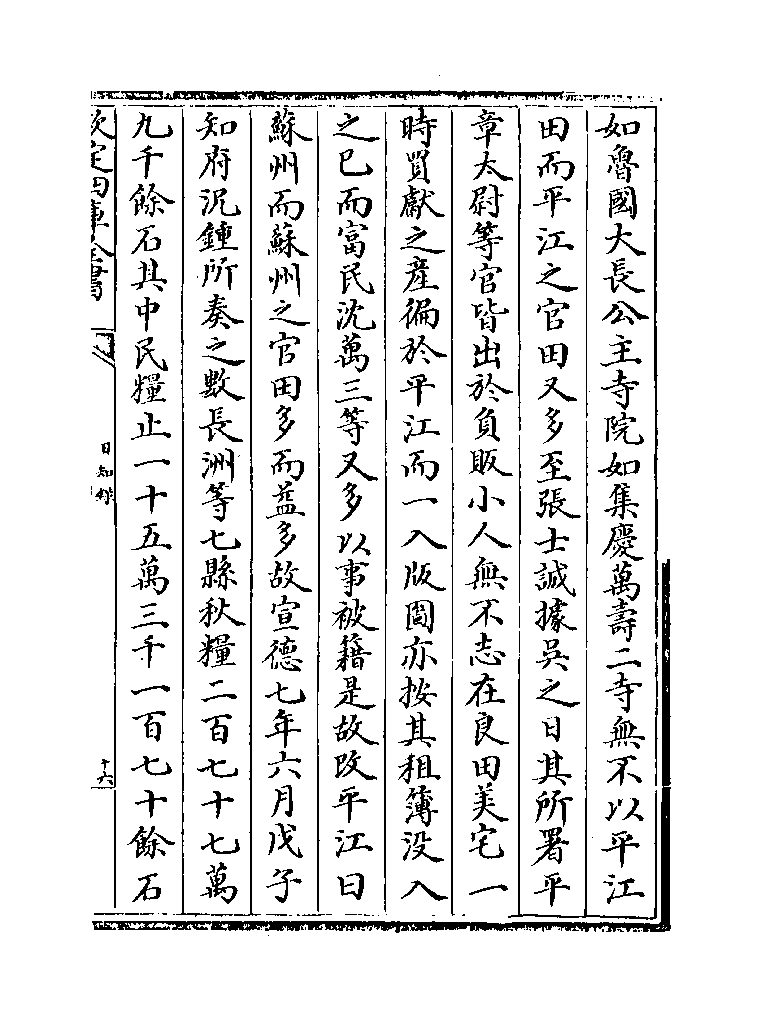 如魯國大長公主寺院如集慶萬壽二寺無不以平江
田而平江之官田又多至張士誠據吳之日其所署平
章太尉等官皆出於負販小人無不志在良田美宅一
時買獻之産徧於平江而一入版圖亦按其租簿没入
之已而富民沈萬三等又多以事被籍是故改平江曰
蘇州而蘇州之官田多而益多故宣德七年六月戊子
知府况鍾所奏之數長洲等七縣秋糧二百七十七萬
九千餘石其中民糧止一十五萬三千一百七十餘石
欽定四庫全書
日知錄
十六